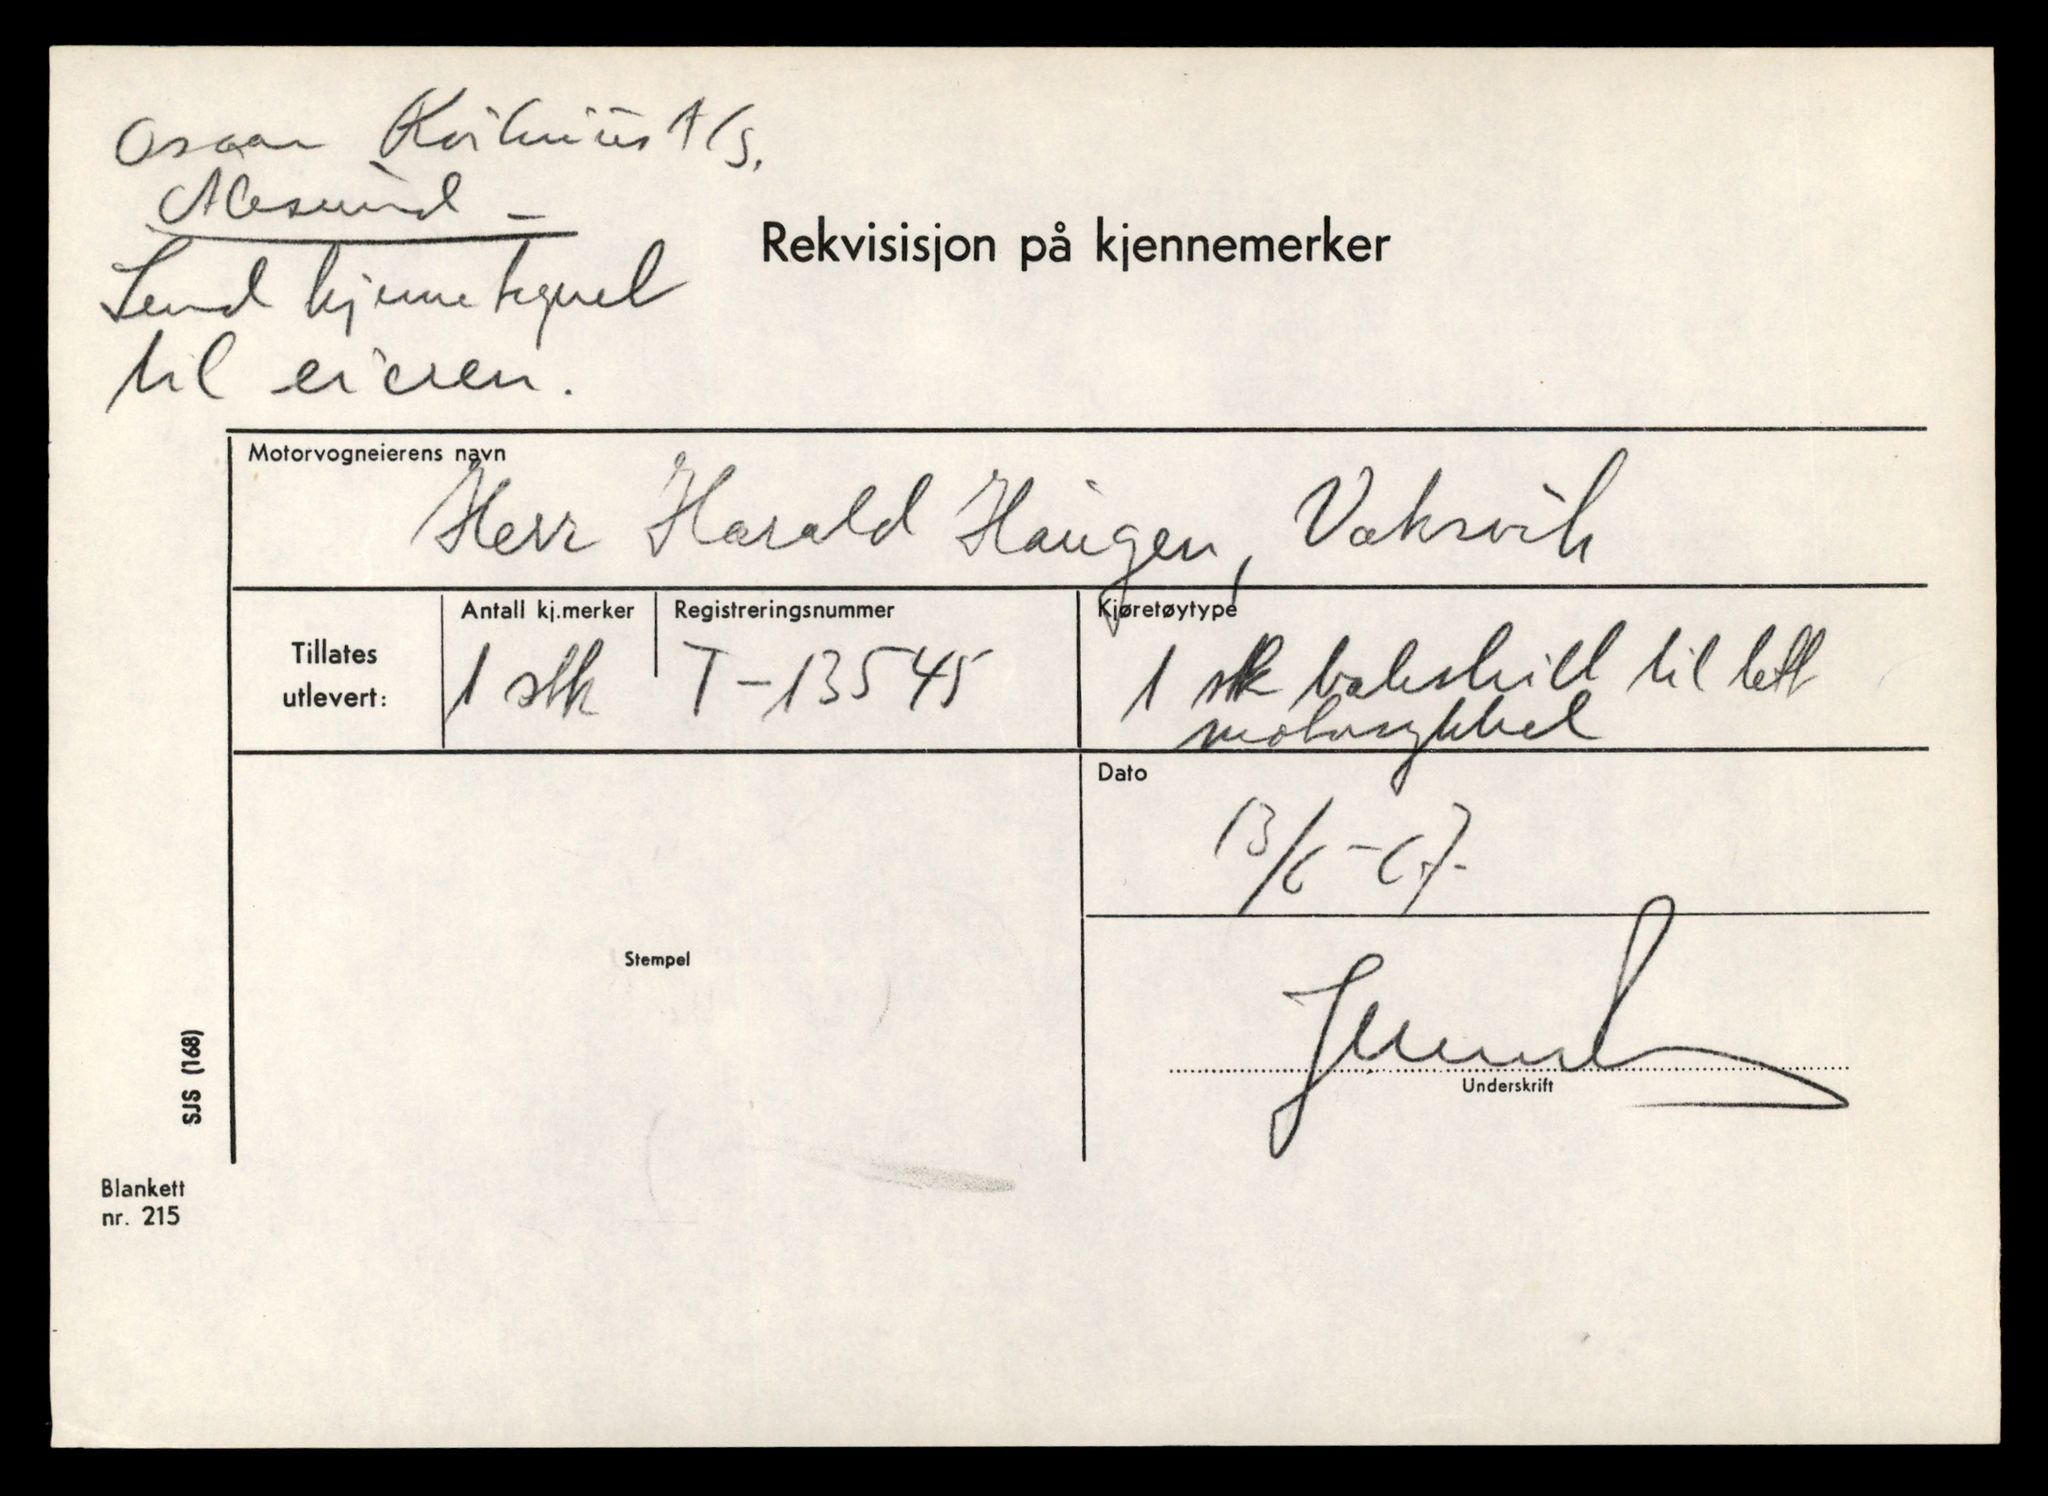 Oscar A/S.
Ålesund -
Send kjennetegnet
til eieren.
Rekvisisjon på kjennemerker
Motorvogneierens navn
Herr Harald Haugen, Vaksvik
Tillates utlevert:
Antall kj.merker
1 stk
Registreringsnummer
T-13545
Kjøretøytype
1 stk bakskilt til lett
motorsykkel
Dato
13/6-67.
Stempel
Underskrift
SJS (168)
Blankett
nr. 215